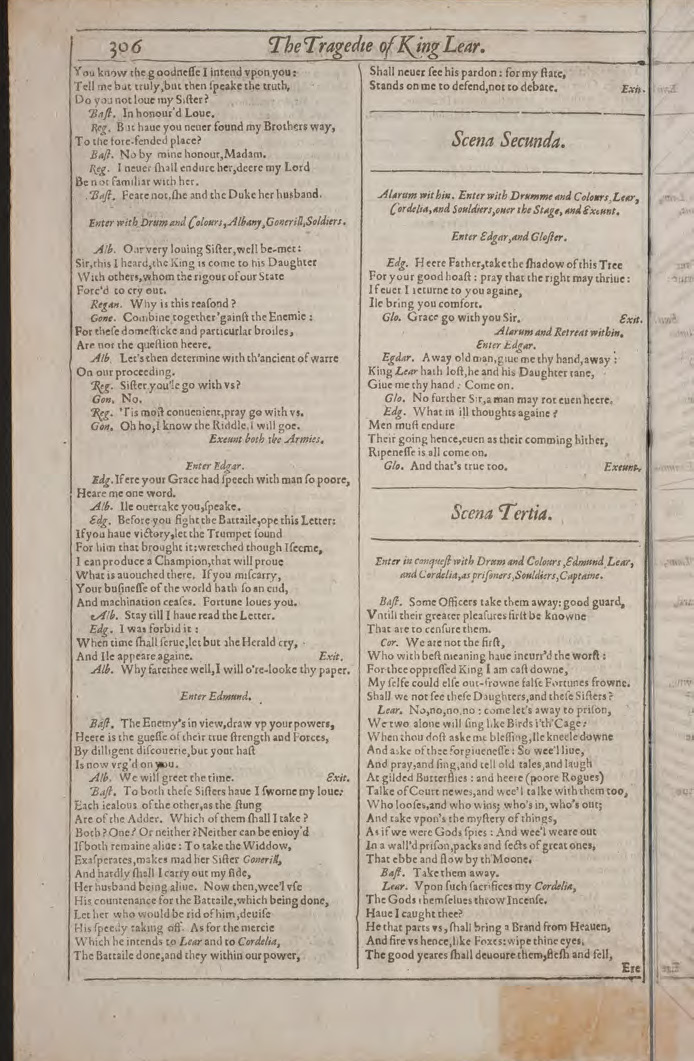 306
The Tragedie of King Lear.
You know the goodnesse I intend vpon you:
Tell me but truly, but then speake the truth,
Do you not loue my Sister?
Bast. In honour'd Loue.
Reg. But haue you neuer found my Brothers way,
To the fore-fended place?
Bast. No by mine honour, Madam.
Reg. I neuer shall endure her, deere my Lord
Be not familiar with her.
Bast. Feare not, she and the Duke her husband.
Enter with Drum and Colours, Albany, Gonerill, Soldiers.
Alb. Our very louing Sister, well be-met:
Sir, this I heard, the King is come to his Daughter
With others, whom the rigour of our State
Forc'd to cry out.
Regan. Why is this reasond?
Gone. Combine together 'gainst the Enemie:
For these domesticke and particurlar broiles,
Are not the question heere.
Alb. Let's then determine with th'ancient of warre
On our proceeding.
Reg. Sister you'le go with vs?
Gon. No.
Reg. 'Tis most conuenient, pray go with vs.
Gon. Oh ho, I know the Riddle, I will goe.
Exeunt both the Armies.
Enter Edgar.
Edg. If ere your Grace had speech with man so poore,
Heare me one word.
Alb. Ile ouertake you, speake.
Edg. Before you fight the Battaile, ope this Letter:
If you haue victory, let the Trumpet sound
For him that brought it: wretched though I seeme,
I can produce a Champion, that will proue
What is auouched there. If you miscarry,
Your businesse of the world hath so an end,
And machination ceases. Fortune loues you.
Alb. Stay till I haue read the Letter.
Edg. I was forbid it:
When time shall serue, let but the Herald cry,
And Ile appeare againe. Exit.
Alb. Why farethee well, I will o're-looke thy paper.
Enter Edmund.
Bast. The Enemy's in view, draw vp your powers,
Heere is the guesse of their true strength and Forces,
By dilligent discouerie, but your hast
Is now vrg'd on you.
Alb. We will greet the time. Exit.
Bast. To both these Sisters haue I sworne my loue:
Each iealous of the other, as the stung
Are of the Adder. Which of them shall I take?
Both? One? Or neither? Neither can be enioy'd
If both remaine aliue: To take the Widdow,
Exasperates, makes mad her Sister Gonerill,
And hardly shall I carry out my side,
Her husband being aliue. Now then, wee'l vse
His countenance for the Battaile, which being done,
Let her who would be rid of him, deuise
His speedy taking off. As for the mercie
Which he intends to Lear and to Cordelia,
The Battaile done, and they within our power,
Shall neuer see his pardon: for my state,
Stands on me to defend, not to debate. Exit.
Scena Secunda.
Alarum within. Enter with Drumme and Colours, Lear,
Cordelia, and Souldiers, ouer the Stage, and Exeunt.
Enter Edgar, and Gloster.
Edg. Heere Father, take the shadow of this Tree
For your good hoast: pray that the right may thriue:
If euer I returne to you againe,
Ile bring you comfort.
Glo. Grace go with you Sir. Exit.
Alarum and Retreat within.
Enter Edgar.
Egdar. Away old man, giue me thy hand, away:
King Lear hath lost, he and his Daughter tane,
Giue me thy hand: Come on.
Glo. No further Sir, a man may rot euen heere.
Edg. What in ill thoughts againe?
Men must endure
Their going hence, euen as their comming hither,
Ripenesse is all come on.
Glo. And that's true too. Exeunt.
Scena Tertia.
Enter in conquest with Drum and Colours, Edmund, Lear,
and Cordelia, as prisoners, Souldiers, Captaine.
Bast. Some Officers take them away: good guard,
Vntill their greater pleasures first be knowne
That are to censure them.
Cor. We are not the first,
Who with best meaning haue incurr'd the worst:
For thee oppressed King I am cast downe,
My selfe could else out-frowne false Fortunes frowne.
Shall we not see these Daughters, and these Sisters?
Lear. No, no, no, no: come let's away to prison,
We two alone will sing like Birds i'th'Cage:
When thou dost aske me blessing, Ile kneele downe
And aske of thee forgiuenesse: So wee'l liue,
And pray, and sing, and tell old tales, and laugh
At gilded Butterflies: and heere (poore Rogues)
Talke of Court newes, and wee'l talke with them too,
Who looses, and who wins; who's in, who's out;
And take vpon's the mystery of things,
As if we were Gods spies: And wee'l weare out
In a wall'd prison, packs and sects of great ones,
That ebbe and flow by th'Moone.
Bast. Take them away.
Lear. Vpon such sacrifices my Cordelia,
The Gods themselues throw Incense.
Haue I caught thee?
He that parts vs, shall bring a Brand from Heauen,
And fire vs hence, like Foxes: wipe thine eyes,
The good yeares shall deuoure them, flesh and fell,
Ere